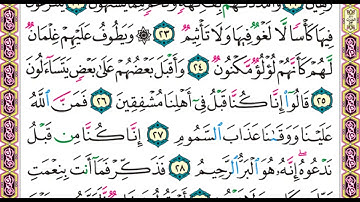 فِيهَا كَأْسًا لَّا لَغْوٌ فِيهَا وَلَا تَأْثِيمٌ ٢٣ ۞ وَيَطُوفُ عَلَيْهِمْ غِلْمَانٌ
لَّهُمْ كَأَنَّهُمْ لُؤْلُؤٌ مَّكْنُونٌ ٢٤ وَأَقْبَلَ بَعْضُهُمْ عَلَىٰ بَعْضٍ يَتَسَاءَلُونَ
٢٥ قَالُوا إِنَّا كُنَّا قَبْلُ فِي أَهْلِنَا مُشْفِقِينَ ٢٦ فَمَنَّ اللَّهُ
عَلَيْنَا وَوَقَانَا عَذَابَ السَّمُومِ ٢٧ إِنَّا كُنَّا مِن قَبْلُ
نَدْعُوهُ إِنَّهُ هُوَ الْبَرُّ الرَّحِيمُ ٢٨ فَذَكِّرْ فَمَا أَنتَ بِنِعْمَتِ